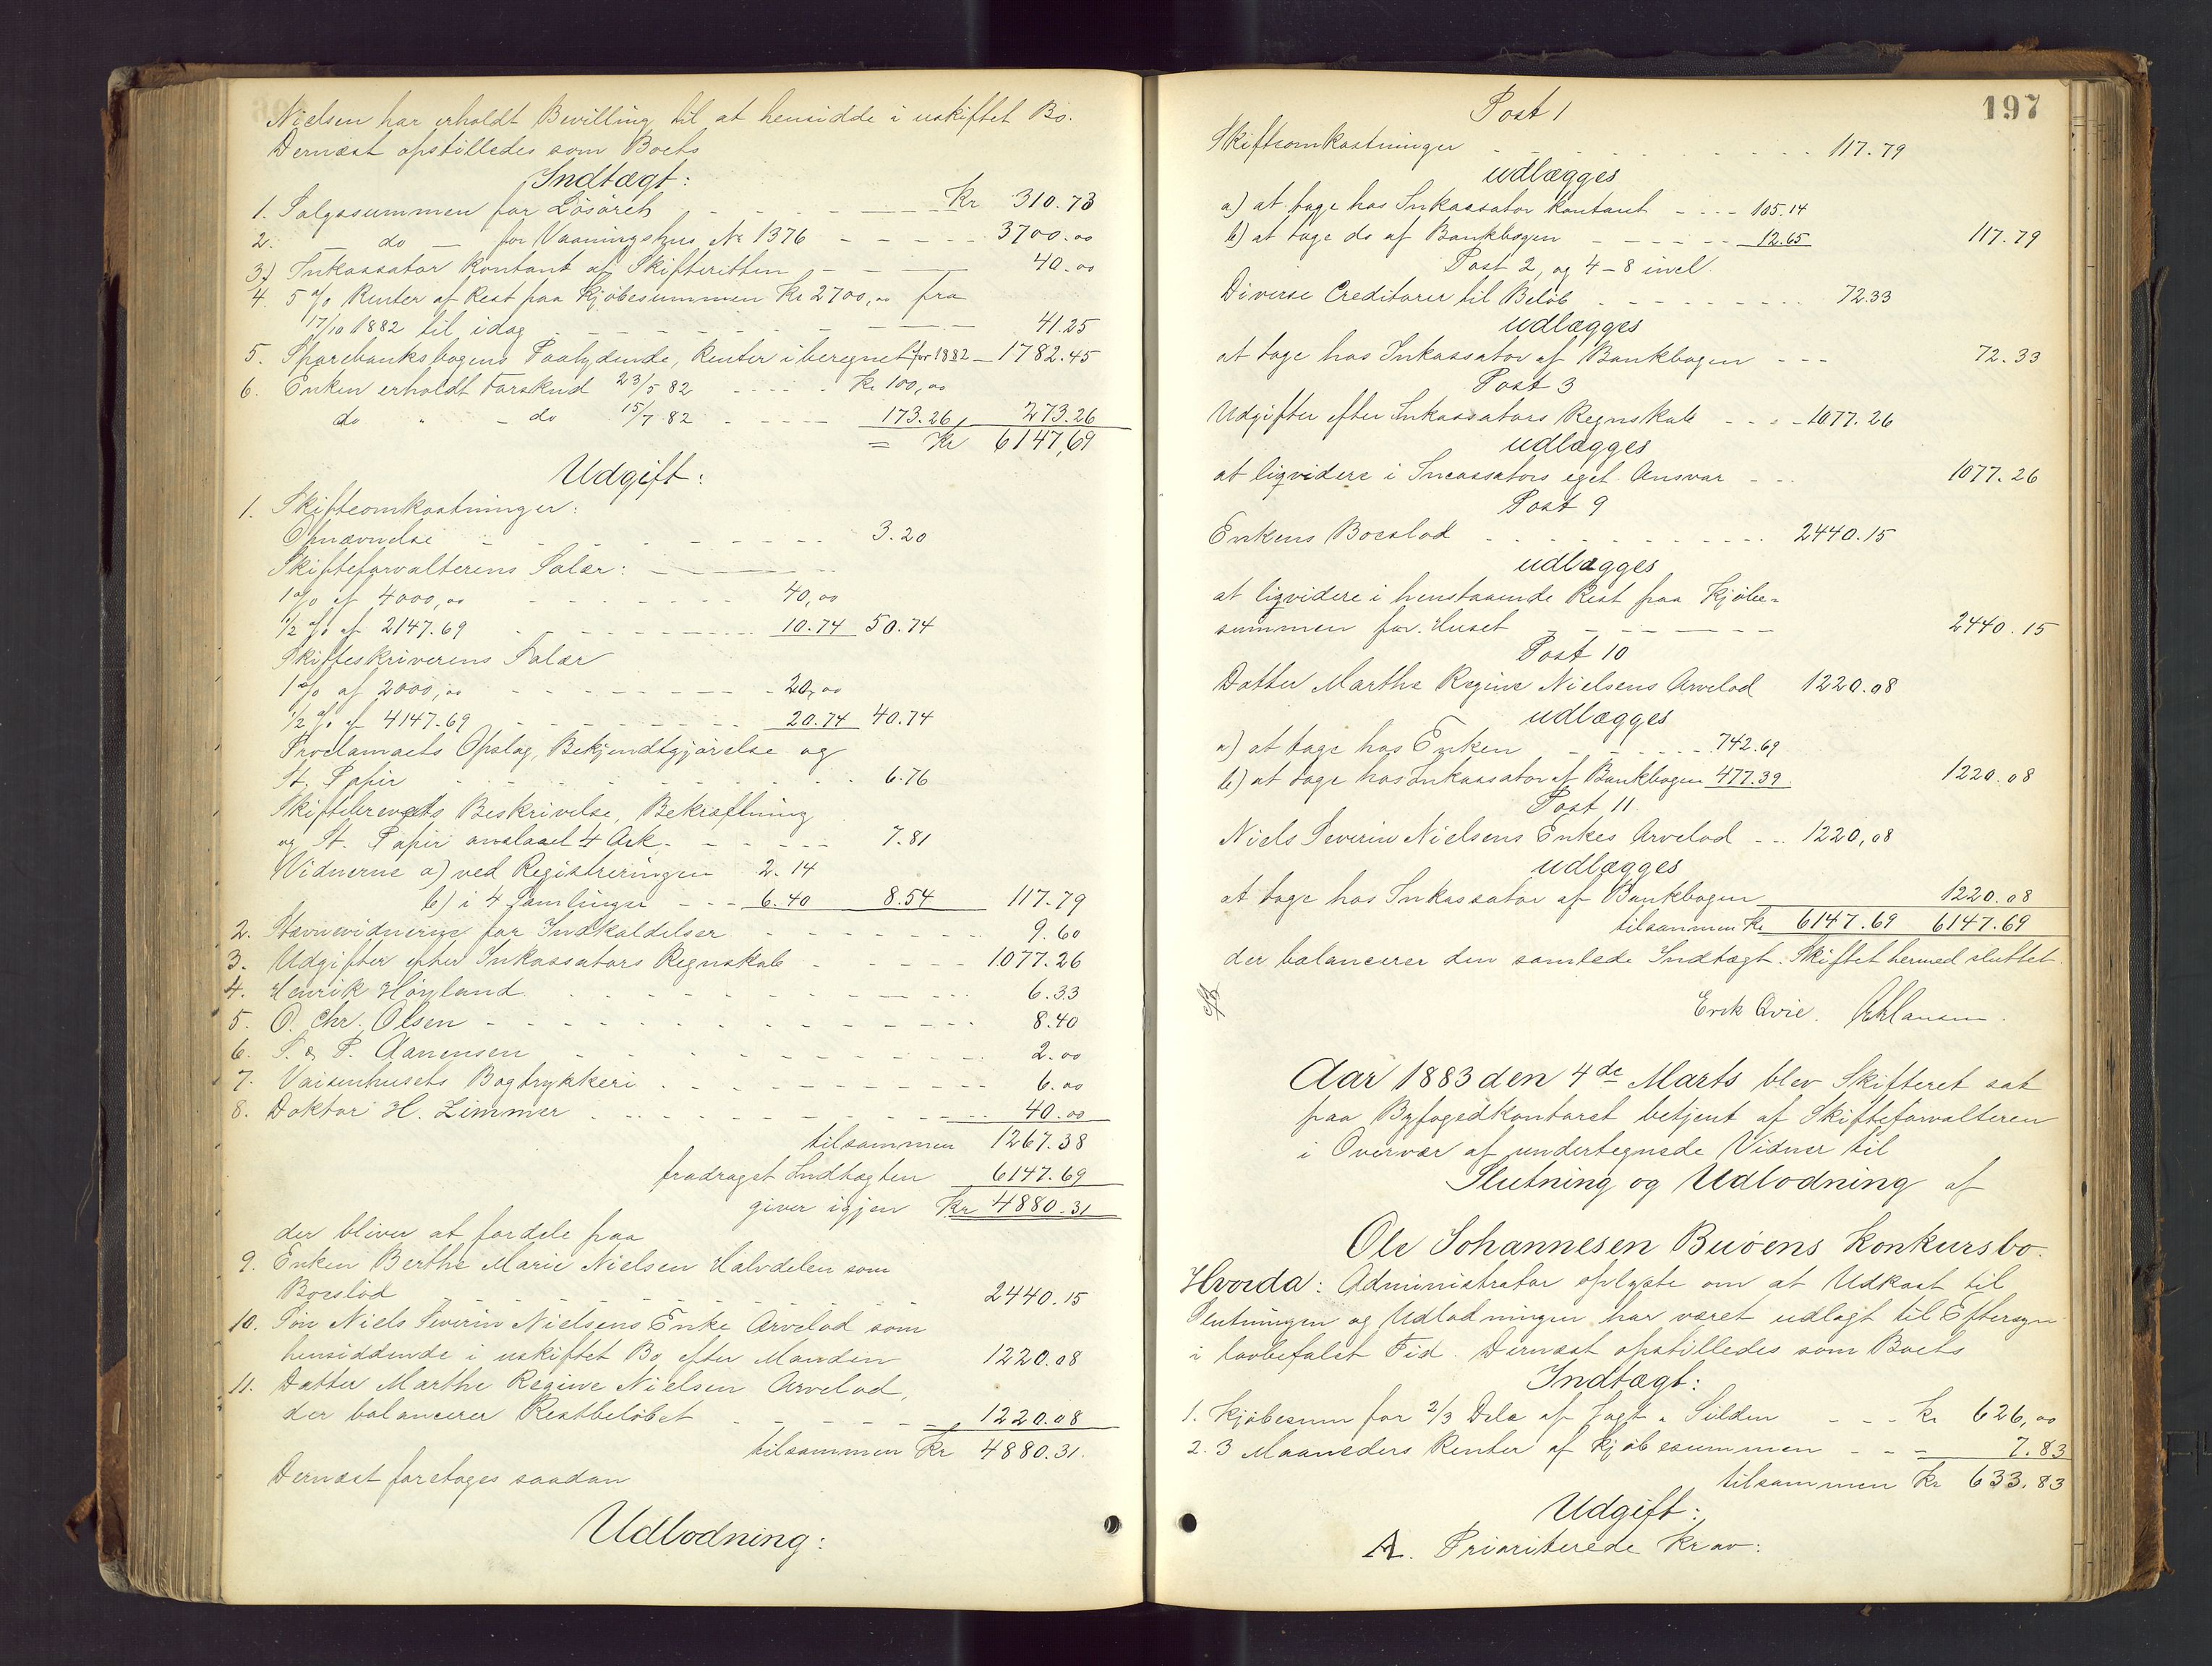 Nielsen har erholdt Bevilling til at hensidde i uskiftet Bo.
Dernæst opstilledes som Boets
Indtægt:
1. Salgssummen for Lösöret - - - - Kr 310.73
2. — do — for Vaaningshus No 1376 - - - - - 3700.00
3.) Inkassator kontant af Skifteretten - - - 40.00
4. 5 % Renter af Rest paa Kjöbesummen Kr 2700,00 fra
17/10 1882 til idag - - - - - - - 41.25
5. Sparebanksbogens Paalydende, Renter iberegnet for 1882 - 1782.45
6. Enken erholdt Forskud 23/5 82 - - - - Kr 100,00
do " - do 15/7 82 - - - - - 173.26, 273.26
= Kr 6147,69
Udgift:
1. Skifteomkostninger:
Opnævnelse - - - - - - - 3.20
Skifteforvalterens Salær: - - -
1 % af 4000,00 - - - - - - 40,00
1/2 % af 2147.69 - - - - - - 10.74 50.74
Skifteskriverens Salær
1 % af 2000,00 - - - - - - 20,00
1/2 % af 4147.69 - - - - - - 20.74 40.74
Proclamaets Opslag, Bekjendtgjörelse og
St. Papir - - - - - - - 6.76
Skiftebrevets Beskrivelse, Bekræftning
og St. Papir anslaaet 4 Ark. - - - - - 7.81
Vidnerne a) ved Registreringen 2.14
b) i 4 Samlinger - - - 6.40 8.54 117.79
2. Stævnevidnerne for Indkaldelser - - - - - - 9.60
3. Udgifter efter Inkassators Regnskab - - - - - 1077.26
4. Henrik Höyland - - - - - - - 6.33
5. O. Chr. Olsen - - - - - - - - 8.40
6. S. & P. Aanensen - - - - - - - 2.00
7. Vaisenhusets Bogtrykkeri - - - - - - - 6.00
8. Doktor H. Zimmer - - - - - - - 40.00
tilsammen 1267.38
fradraget Indtægten 6147.69
giver igjen Kr 4880.31
der bliver at fordele paa
9. Enken Berthe Marie Nielsen Halvdelen som
Boeslod - - - - - - - - 2440.15
10. Sön Niels Severin Nielsens Enke Arvelod som
hensiddende i uskiftet Bo efter Manden 1220.08
11. Datter Marthe Regine Nielsen Arvelod,
der balancerer Restbelöbet - - - - - 1220.08
tilsammen Kr 4880.31.
Dernæst foretoges saadan
Udlodning:
197
Post 1
Skifteomkostninger - - - - - - 117.79
udlægges
a) at tage hos Inkassator kontant - - - - 105.14
b) at tage do af Bankbogen - - - - - - 12.65 117.79
Post 2, og 4 - 8 incl.
Diverse Creditorer til Belöb - - - - - - 72.33
udlægges
at tage hos Inkassator af Bankbogen - - - 72.33
Post 3
Udgifter efter Inkassators Regnskab - - - - 1077.26
udlægges
at liqvidere i Incassators eget Ansvar - - - 1077.26
Post 9
Enkens Boeslod - - - - - - - 2440.15
udlægges
at liqvidere i henstaaende Rest paa Kjöbe=
summen for Huset - - - - - - 2440.15
Post 10
Datter Marthe Regine Nielsens Arvelod 1220.08
udlægges
a) at tage hos Enken - - - - - 742.69
b) at tage hos Inkassator af Bankbogen 477.39 1220.08
Post 11
Niels Severin Nielsens Enkes Arvelod - - - 1220,08
udlægges
at tage hos Inkassator af Bankbogen 1220.08
tilsammen Kr 6147.69 6147.69
der balancerer den samlede Indtægt. Skiftet hermed sluttet.
Erik Qvie.
Aar 1883 den 4de Marts blev Skifteret sat
paa Byfogedkontoret betjent af Skifteforvalteren
i Overvær af undertegnede Vidner til
Slutning og Udlodning af
Ole Johannesen Buöens Konkursbo.
Hvorda: Administrator oplyste om at Udkast til
Slutningen og Udlodningen har været udlagt til Eftersyn
i lovbefalet Tid. Dernæst opstilledes som Boets
Indtægt:
1. Kjöbesum for 2/3 Dele af Jagt " Silden - - - Kr 626,00
2. 3 Maaneders Renter af Kjöbesummen - - - 7.83
tilsammen Kr 633.83
Udgift:
A. Prioriterede Krav: